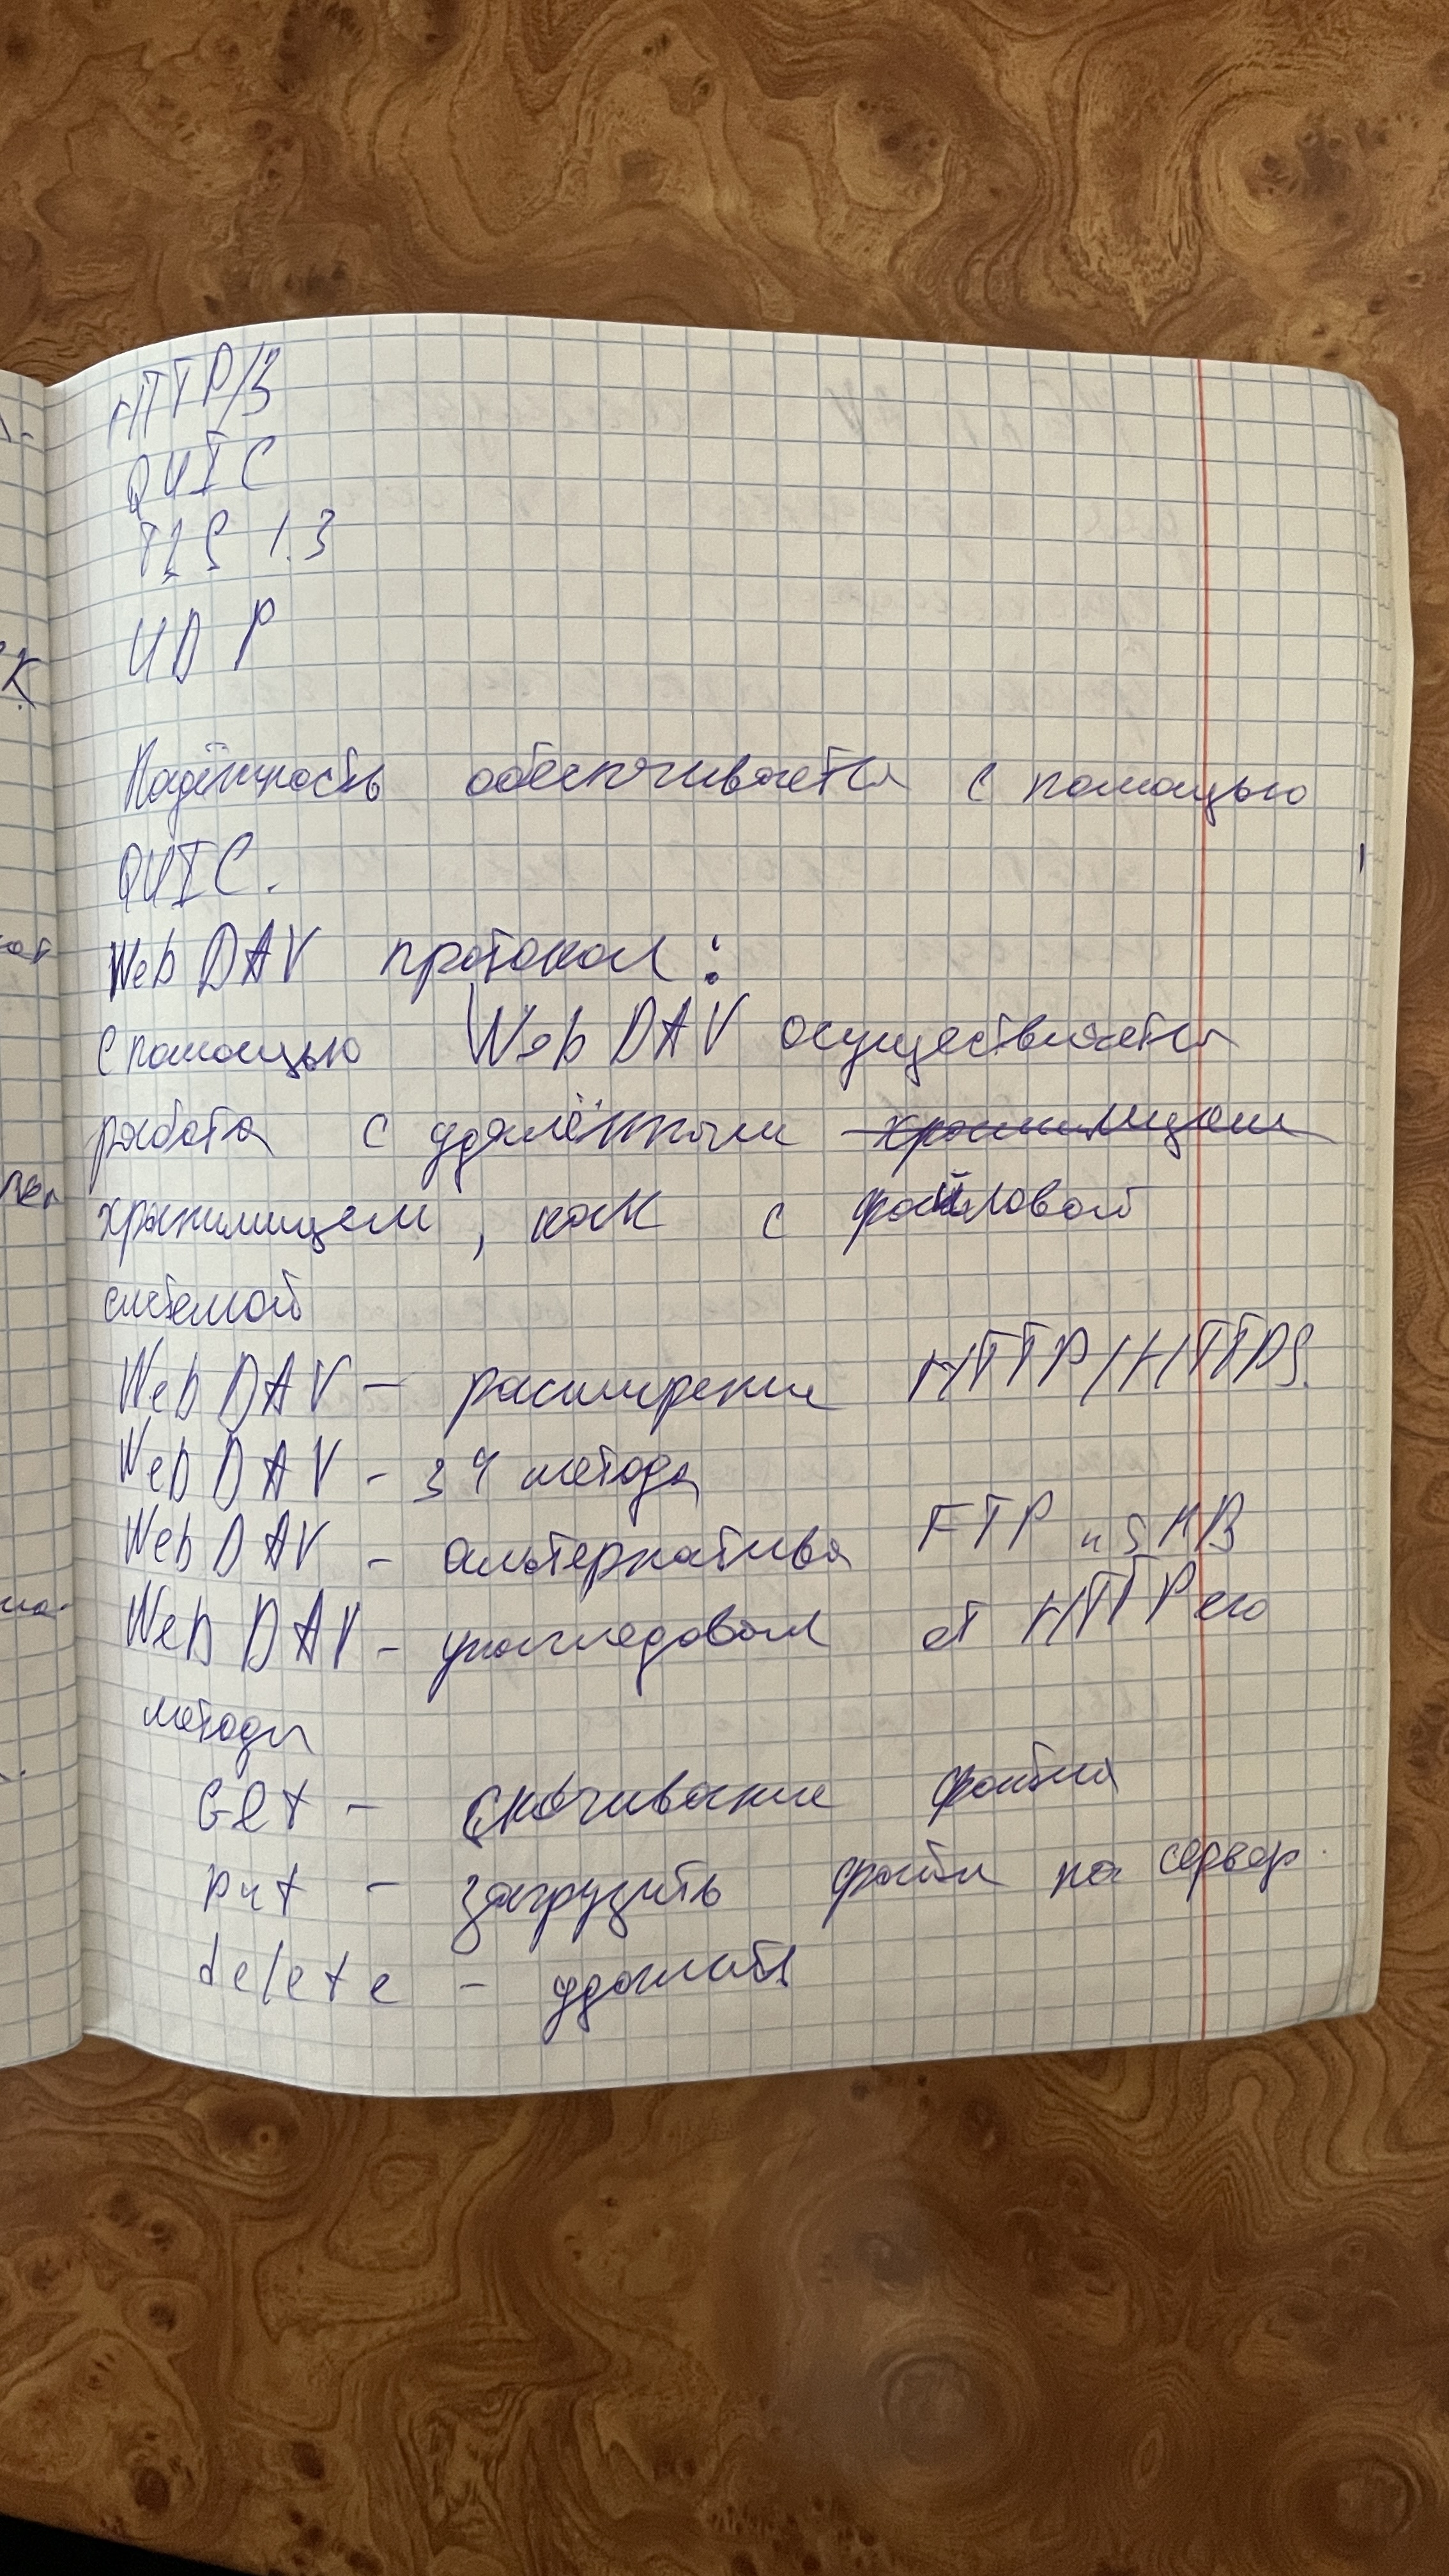 HTTP/3
QUIC
TLS 1.3
UDP
Надёжность обеспечивается с помощью
QUIC.
WebDAV протокол:
С помощью WebDAV осуществляется
работа с удалённым хранилищем
хранилищем, как с файловой
системой
WebDAV – расширение HTTP/HTTPS.
WebDAV - 34 метода
WebDAV - альтернатива FTP и SMB
WebDAV - унаследовал от HTTP его
методы
Get - скачивание файла
put - загрузить файл на сервер
delete - удалить